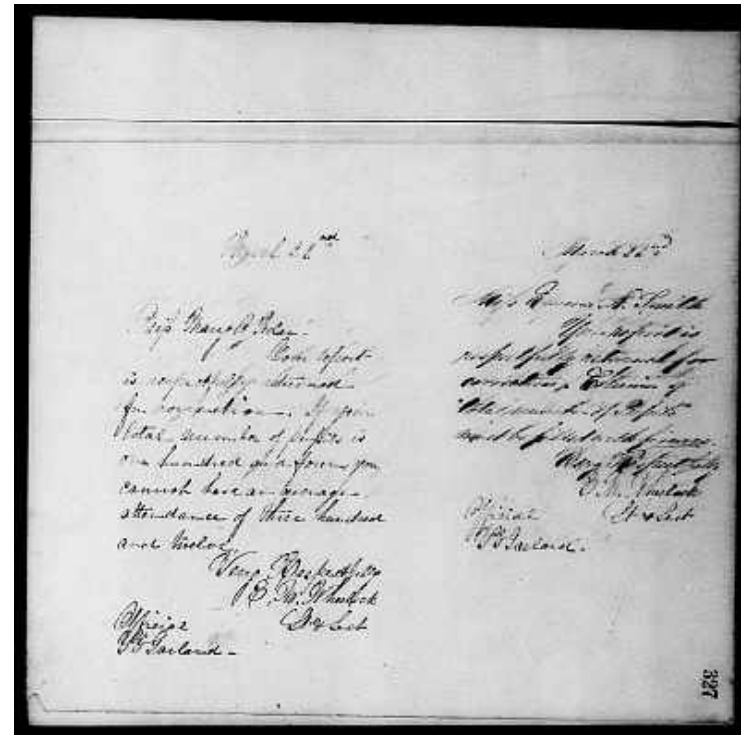 April 22nd
Miss Mary
Your report
is respectfully returned
for correction. If your
total number of pupils is
one hundred and you
cannot have an average
attendance of three hundred
and twelve
Very Respectfully
E. M. Wheelock
Lt & Sect
Official
Garland
March 22nd
Miss Emma N. Smith
Your report is
respectfully returned for
correction, Column of
total number of Pupils
must be filled with figures
Very Respectfully
E. M. Wheelock
Lt & Sect
Official
Garland.
327